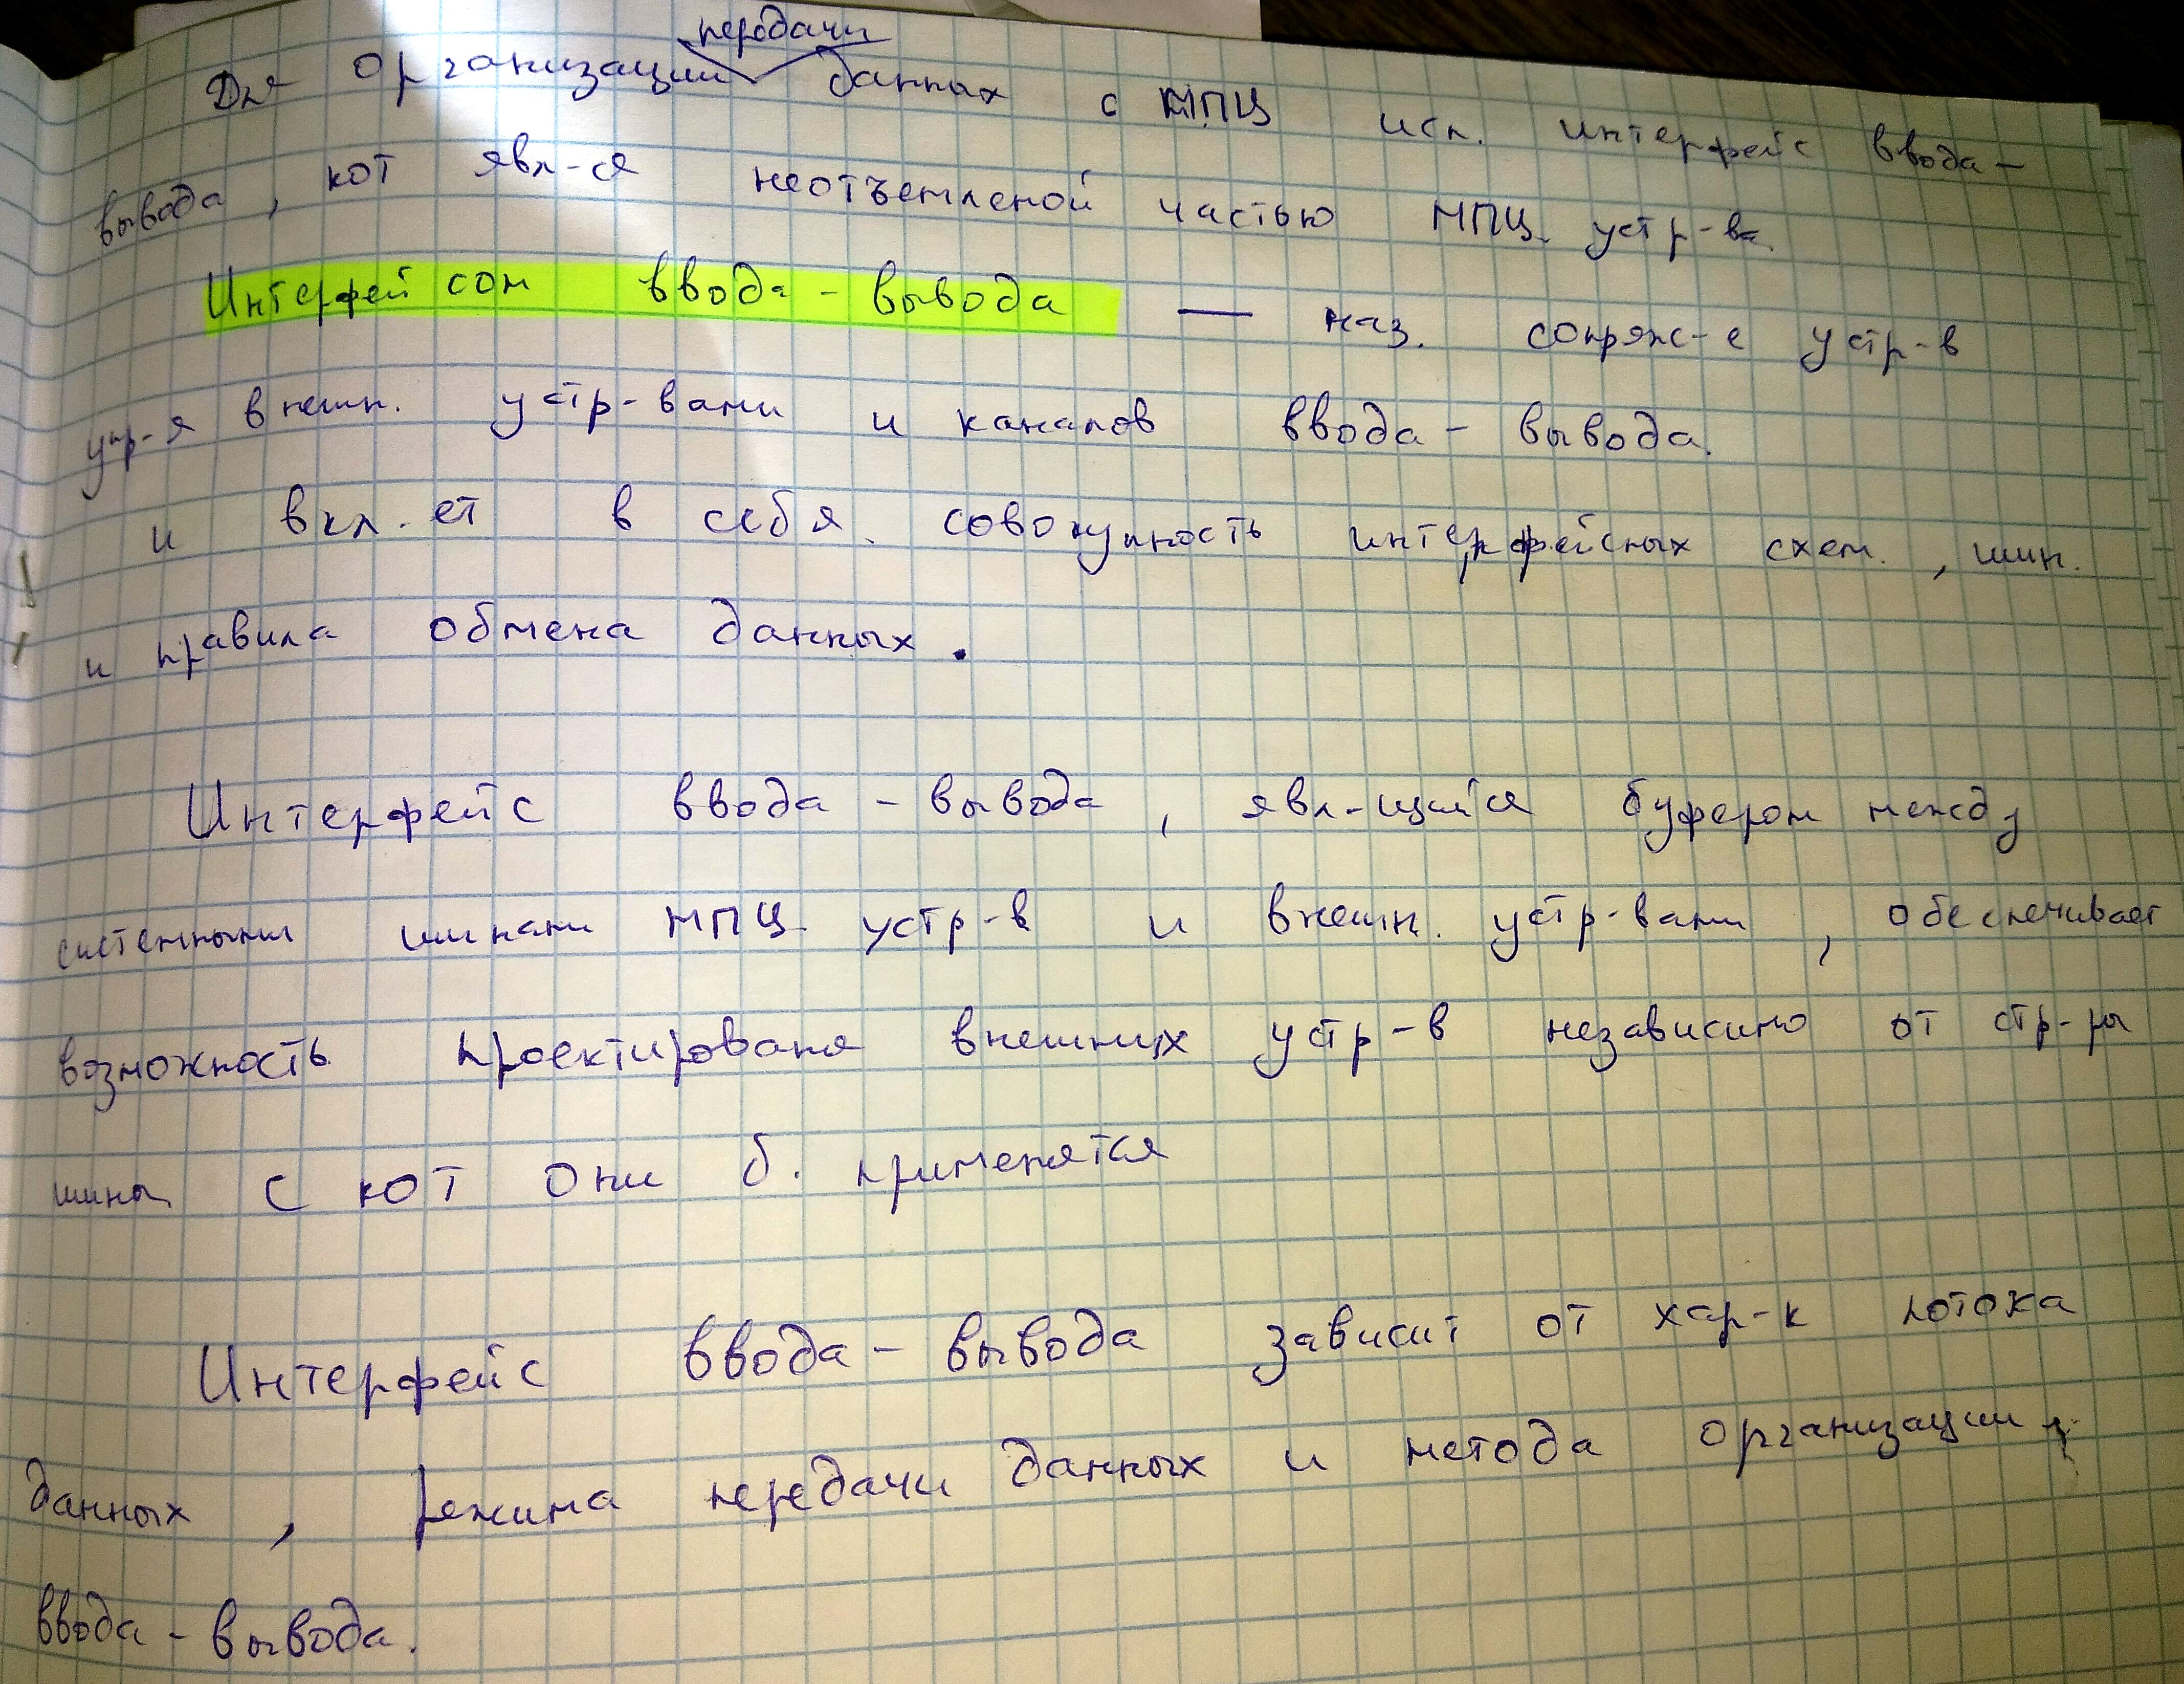 передачи
Для организации данных с МПЦ исп. интерфейс ввода-
вывода, кот явл-ся неотъемленой частью МПЦ устр-ва.
Интерфейсом ввода-вывода — наз. сопряж-е устр-в
упр-я внешн. устр-вами и каналов ввода-вывода.
и вкл.ет в себя совокупность интерфейсных схем, шин.
и правила обмена данных.
Интерфейс ввода-вывода, явл-щийся буфером между
системными шинами МПЦ устр-в и внешн. устр-вами, обеспечивает
возможность проектированя внешних устр-в независимо от стр-ры
шины с кот они б. применятся
Интерфейс ввода-вывода зависит от хар-к потока
данных, режима передачи данных и метода организации
ввода-вывода.